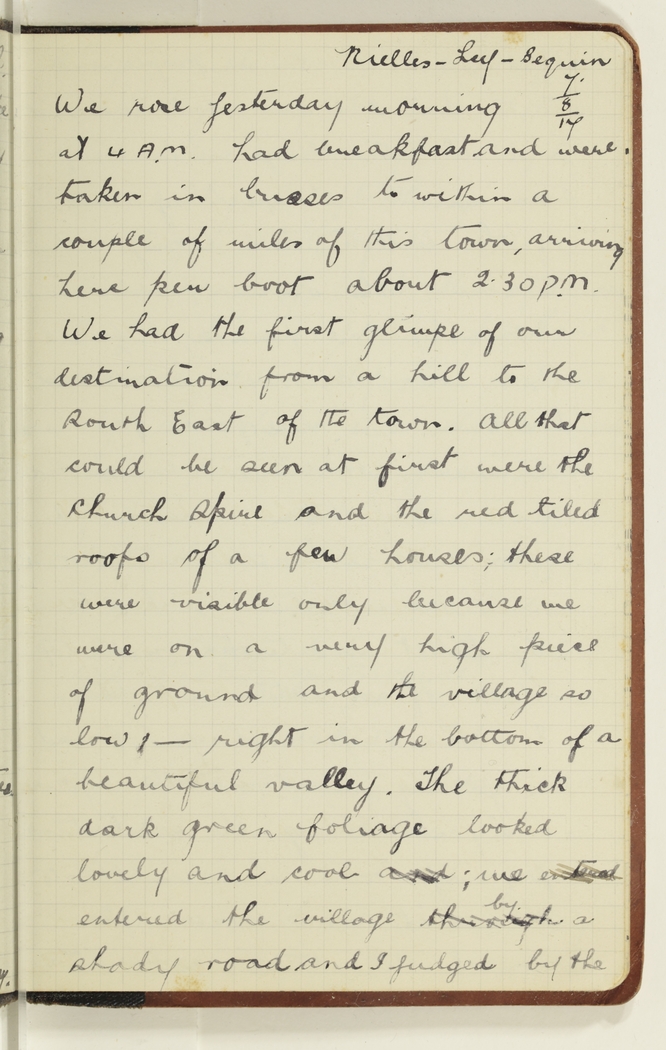 Nielles-Ley-Bequin
7/8/17
We rose yesterday morning
at 4 A.m. had breakfast and were
taken in busses to within a
couple of miles of this town, arriving
here per boot about 2.30 p.m.
We had the first glimpe of our
destination from a hill to the
South East of the town. All that
could be seen at first were the
church spire and the red tiled
roofs of a few houses; these
were visible only because we
were on a very high piece
of ground and the village so
low, — right in the bottom of a
beautiful valley. The thick
dark green foliage looked
lovely and cool and ; we
entered the village through by a
shady road and I judged by the